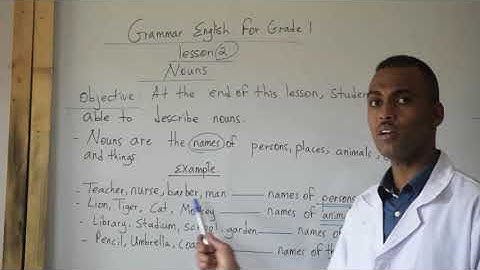 Grammar English For Grade 1
lesson 2
Nouns
Objective At the end of this lesson, Studen
able to describe nouns.
- Nouns are the names of persons, places, animals,
and things
Example
- Teacher, nurse, barber, man —— names of persons
- Lion, Tiger, Cat, Monkey —— names of anim
- Library, Stadium, school, garden —— names of
- Pencil, Umbrella, Coa —— names of th